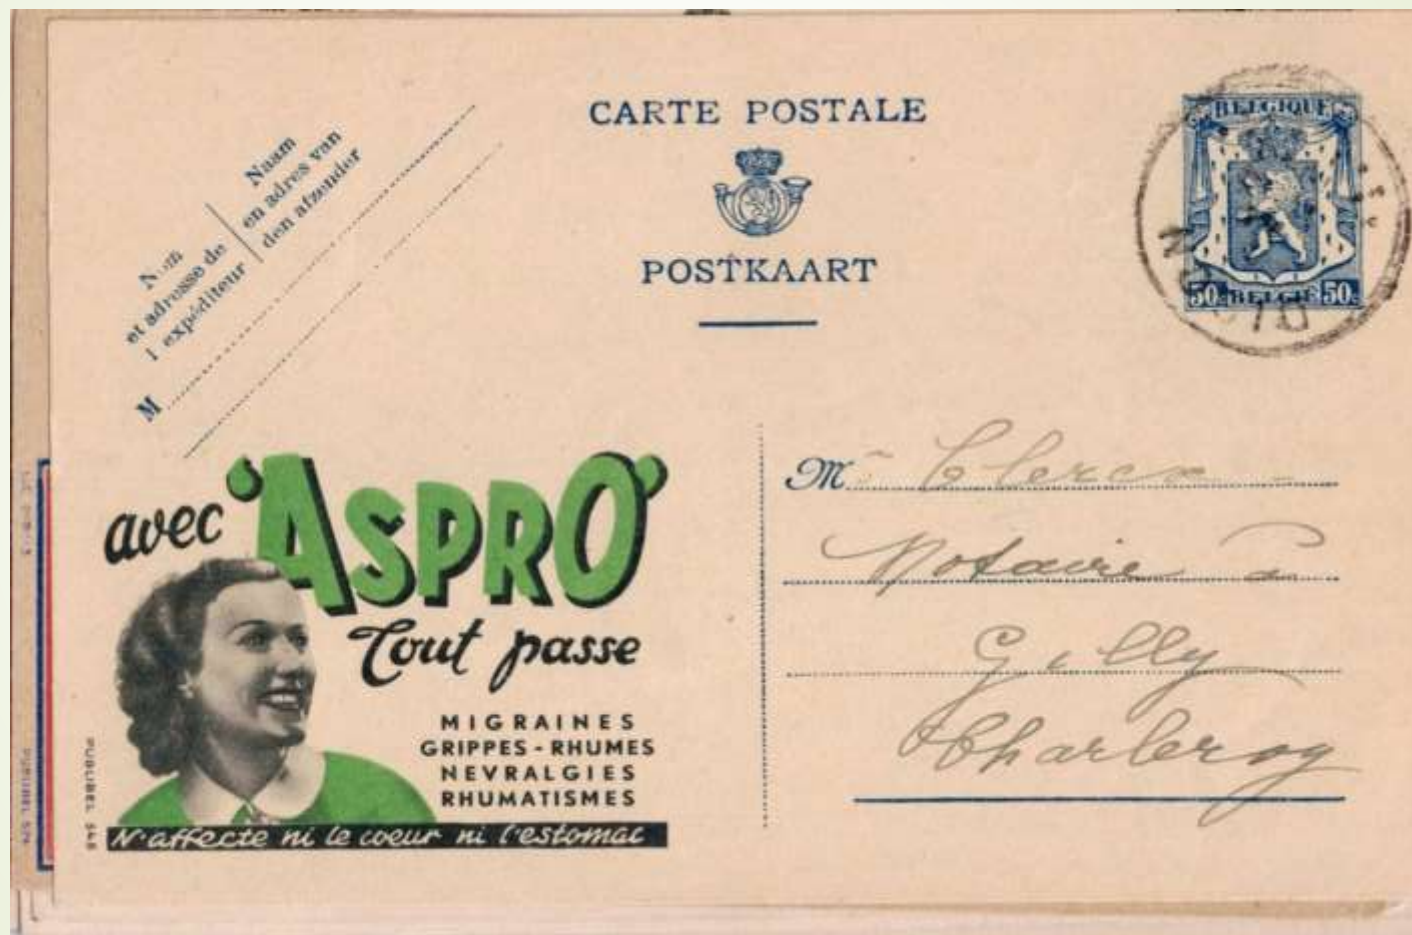 CARTE POSTALE
POSTKAART
Naam
en adres van
den afzender
et adresse de
l expéditeur
M
BELGIQUE
50c BELGIË 50c
avec 'ASPRO'
Tout passe
MIGRAINES
GRIPPES - RHUMES
NEVRALGIES
RHUMATISMES
N'affecte ni le coeur ni l'estomac
PUBLIBEL
M Clercx
Notaire à
Gilly
Charleroy